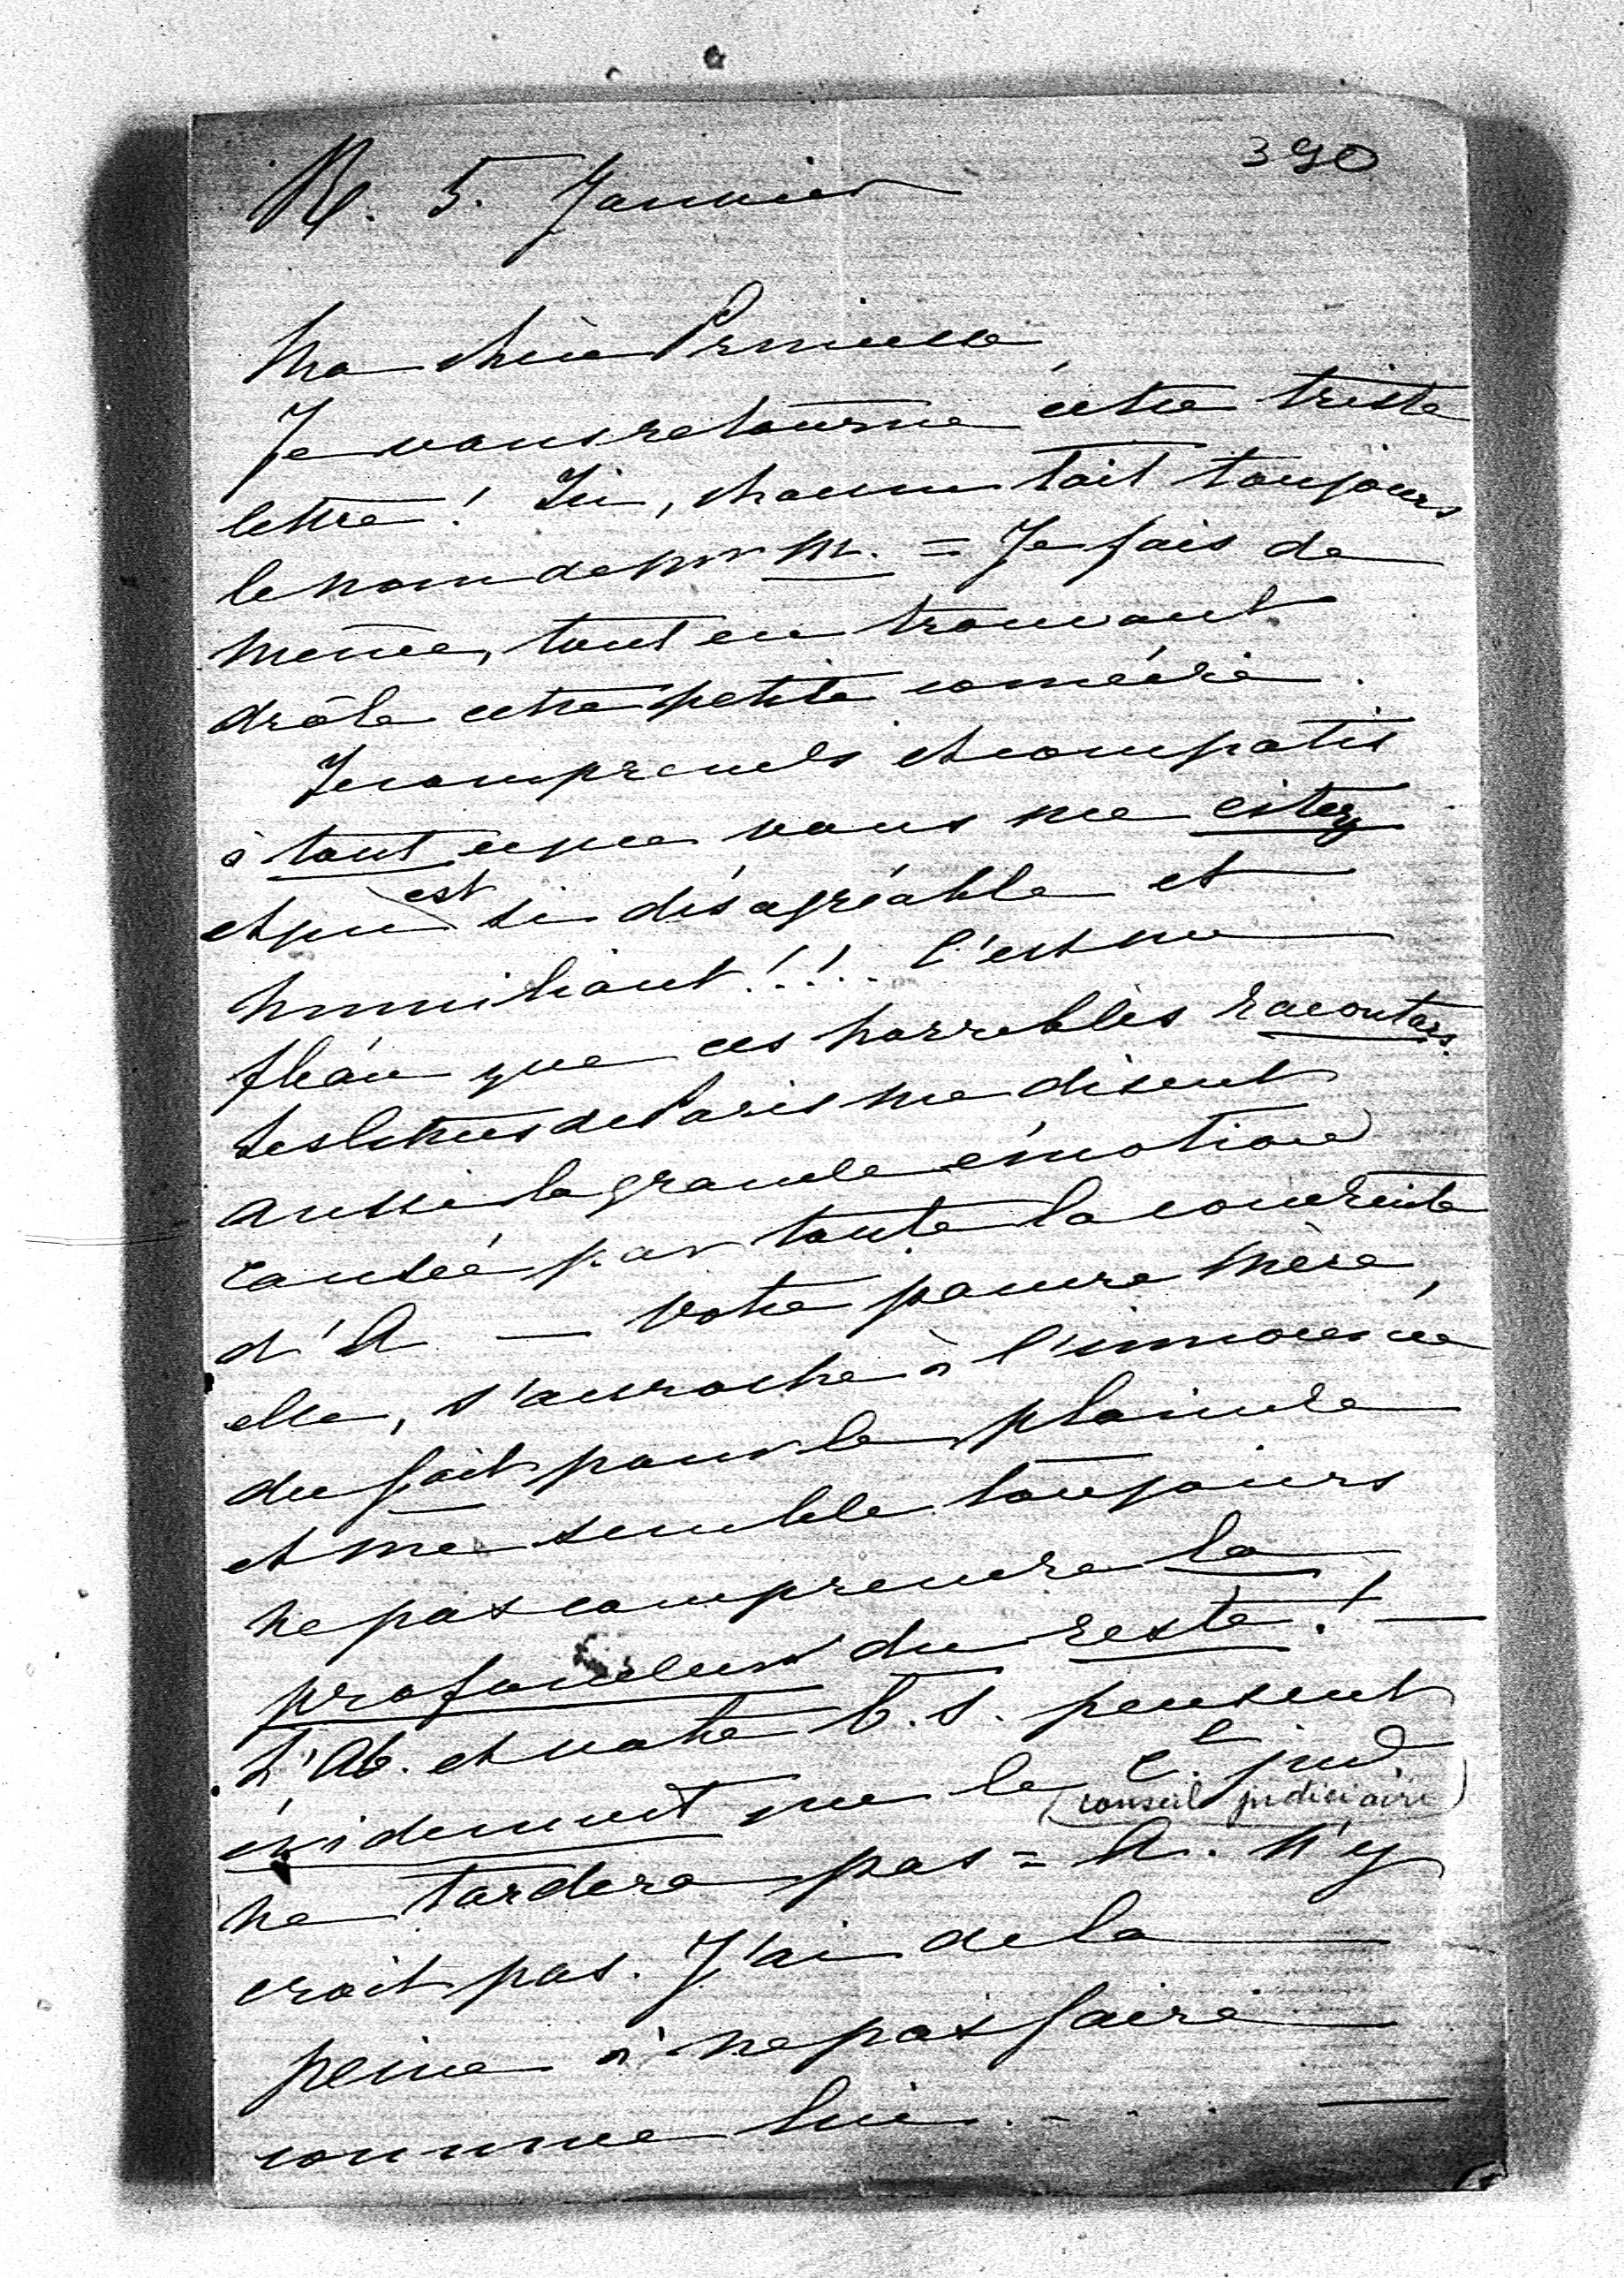 390
M. 5. Janvier
Ma chère Princesse,
Je vous retourne cette triste
lettre ! Ici, chacun tait toujours
le nom de Mr M. = Je fais de
même, tout en trouvant
drôle cette petite comédie.
Je comprends et compatis
à tout ce que vous me citez
et qui est si désagréable et
humiliant !!! C'est un
fléau que ces horribles racontars.
Les lettres de Paris me disent
aussi la grande émotion
causée par toute la conduite
d'A — Votre pauvre mère,
elle, s'accroche à l'innocence
du fait pour le plaindre
et me semble toujours
ne pas comprendre la
profondeur du reste ! —
L'Ab. et votre b. s. pensent
évidemment que le Cl. jud.
(conseil judiciaire)
ne tardera pas = A. n'y
croit pas. J'ai de la
peine à ne pas faire
comme lui . - . . . —